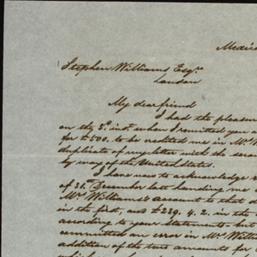 Medica
Stephen Williams Esqr.
London
My dear friend
I had the pleasure
on the 3d. inst. when I remitted you a
for £500. to be credited me in Mr. W
duplicate of my letter with the
by way of the United States.
I have now to acknowledge
of 21. December last handing me
Mr. Williams's account to that
in the first, and £229. 4. 2. in the
according to your statements. but
committed an error in Mr. Will
addition of the two amounts for